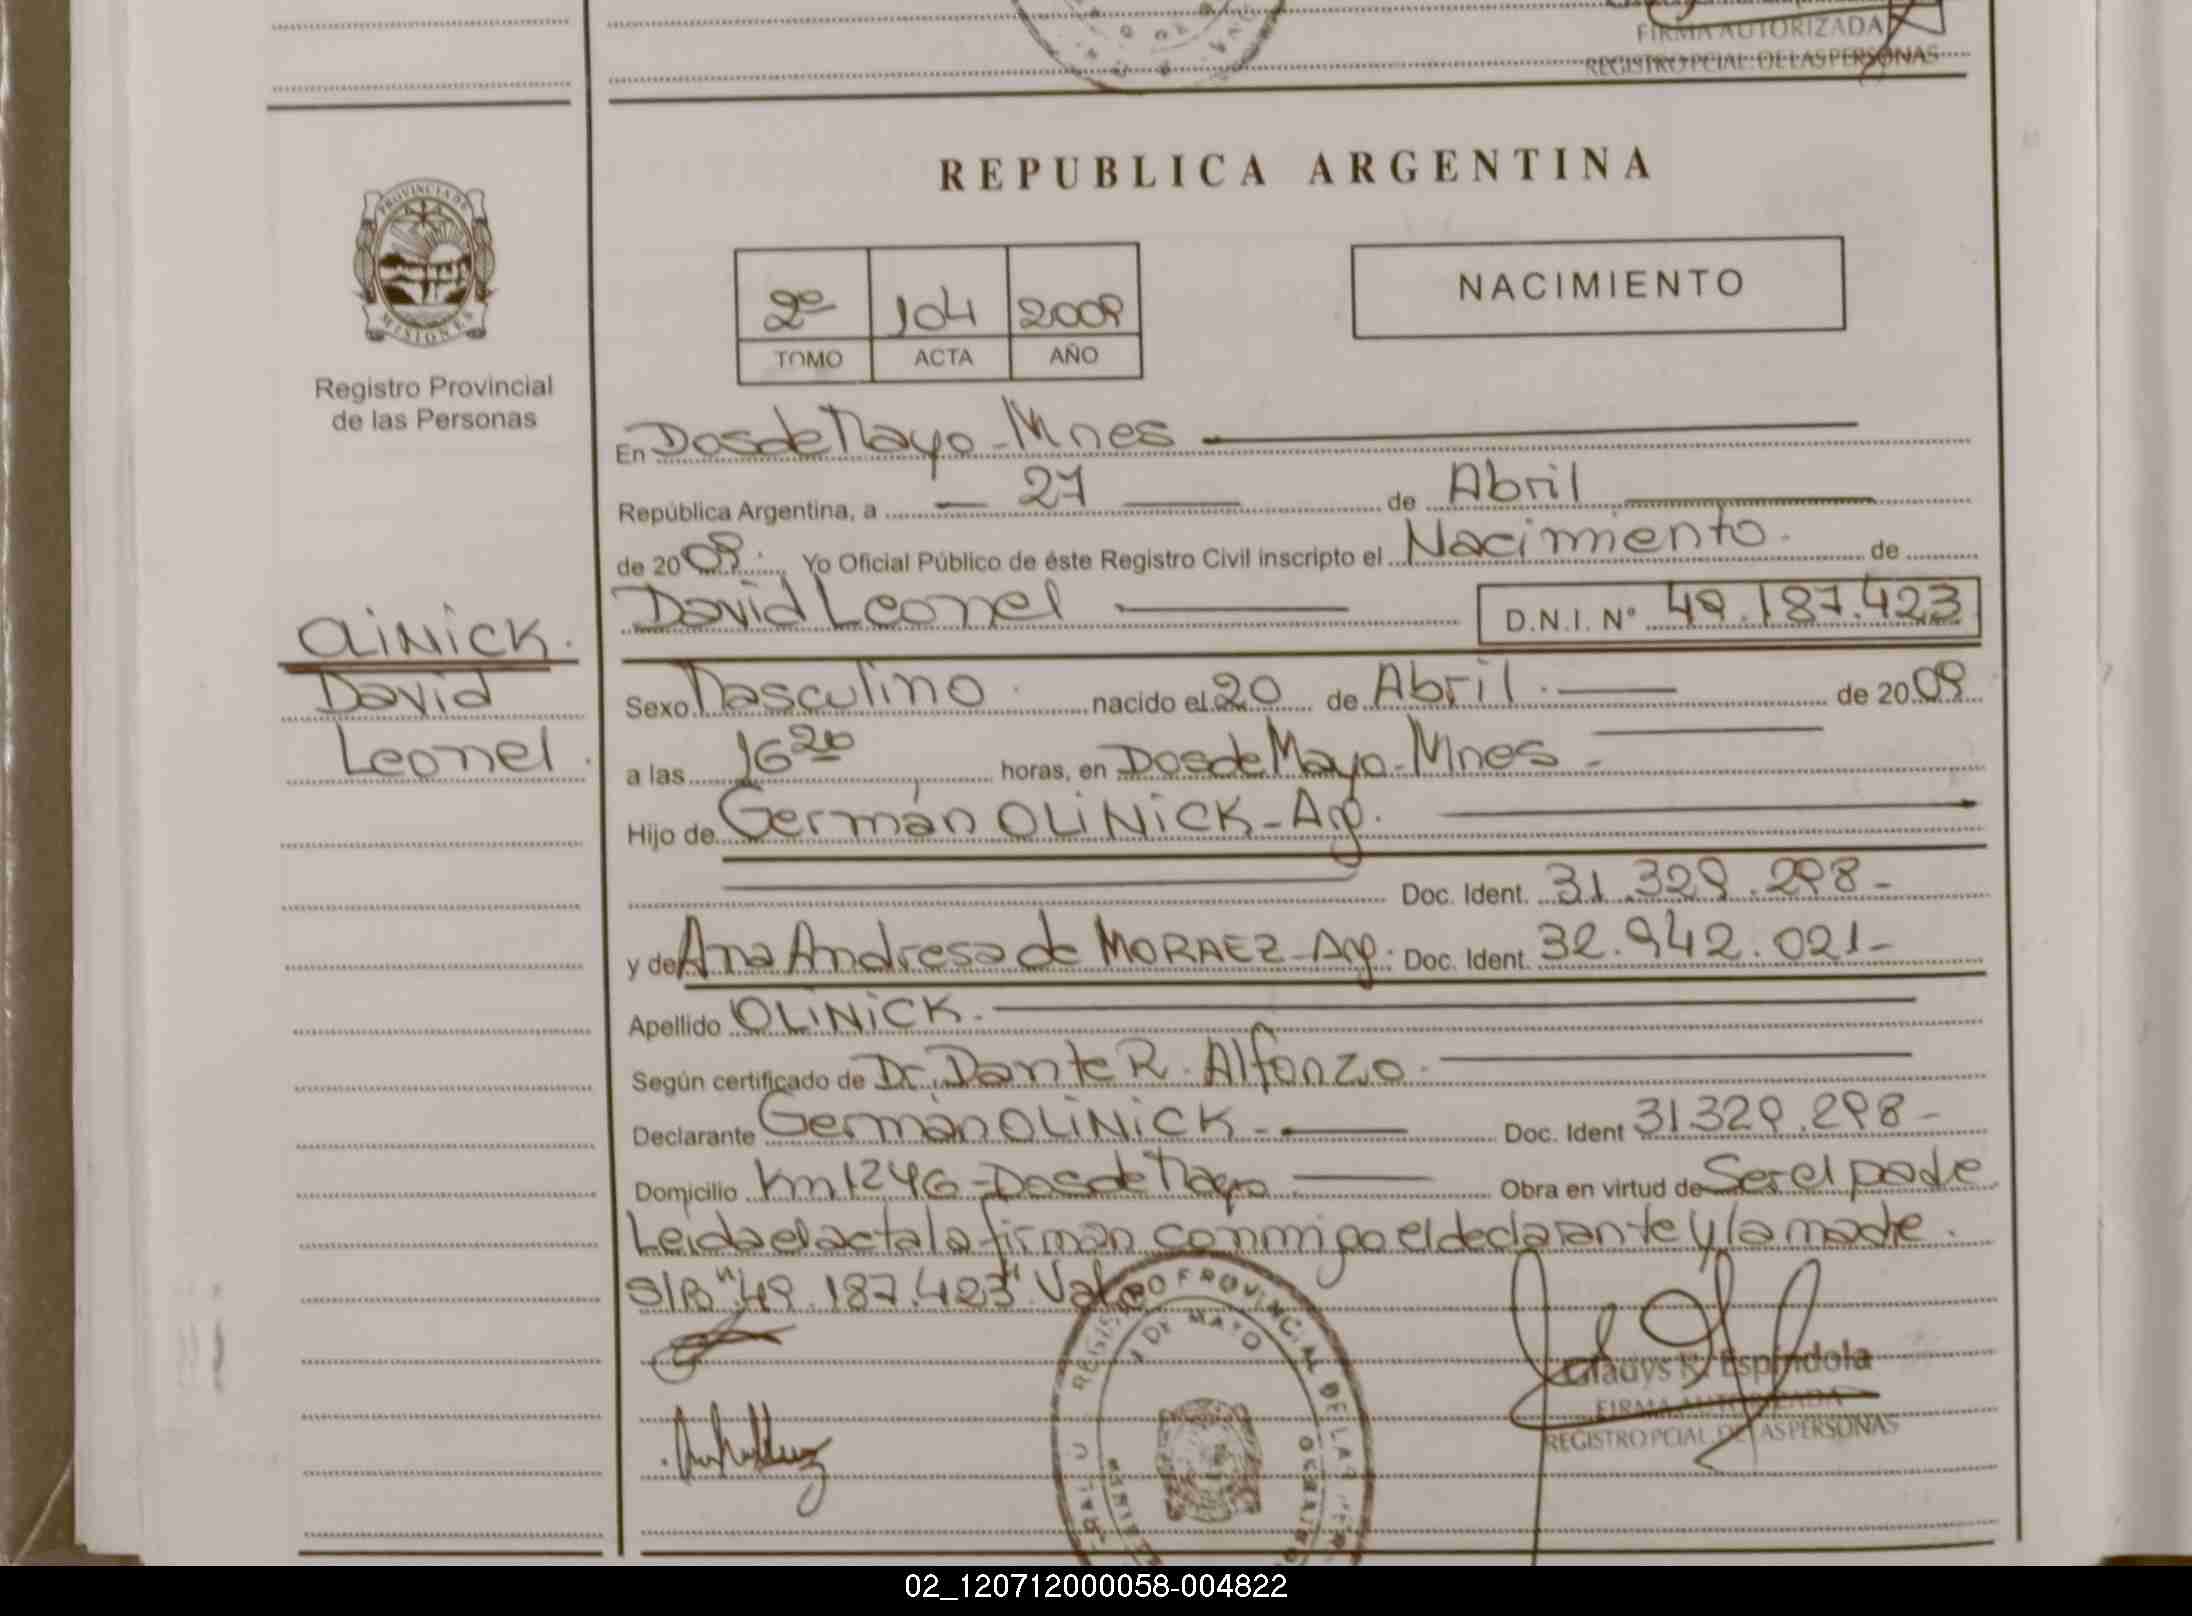 FIRMA AUTORIZADA
REGISTRO PCIAL. DE LAS PERSONAS
PROVINCIA DE
MISIONES
Registro Provincial
de las Personas
REPUBLICA ARGENTINA
2º 104 2009
TOMO ACTA AÑO
NACIMIENTO
En Dos de Mayo - Mnes
República Argentina, a 27 de Abril
de 2009. Yo Oficial Público de éste Registro Civil inscripto el Nacimiento. de
David Leonel D.N.I. Nº 49.187.423
OLINICK.
David
Leonel.
Sexo Masculino. nacido el 20 de Abril. de 2009
a las 16 20 horas, en Dos de Mayo - Mnes -
Hijo de Germán OLINICK - Arg.
Doc. Ident. 31.329.298-
y de Ana Andresa de MORAEZ - Arg. Doc. Ident. 32.942.021-
Apellido OLINICK.
Según certificado de Dr. Dante R. Alfonzo.
Declarante Germán OLINICK - Doc. Ident 31329.298-
Domicilio Km 1246 - Dos de Mayo Obra en virtud de Ser el padre
Leida el acta la firman conmigo el declarante y la madre.
S/B "49.187.423" Vale
REGISTRO PROVINCIAL DE LAS
DE MAYO
Gladys N. Espindola
FIRMA AUTORIZADA
REGISTRO PCIAL. DE LAS PERSONAS
02_120712000058-004822